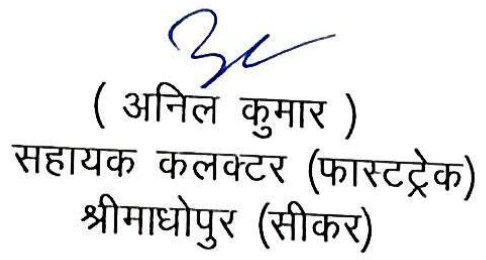 ( अनिल कुमार )
सहायक कलक्टर (फास्टट्रेक)
श्रीमाधोपुर (सीकर)